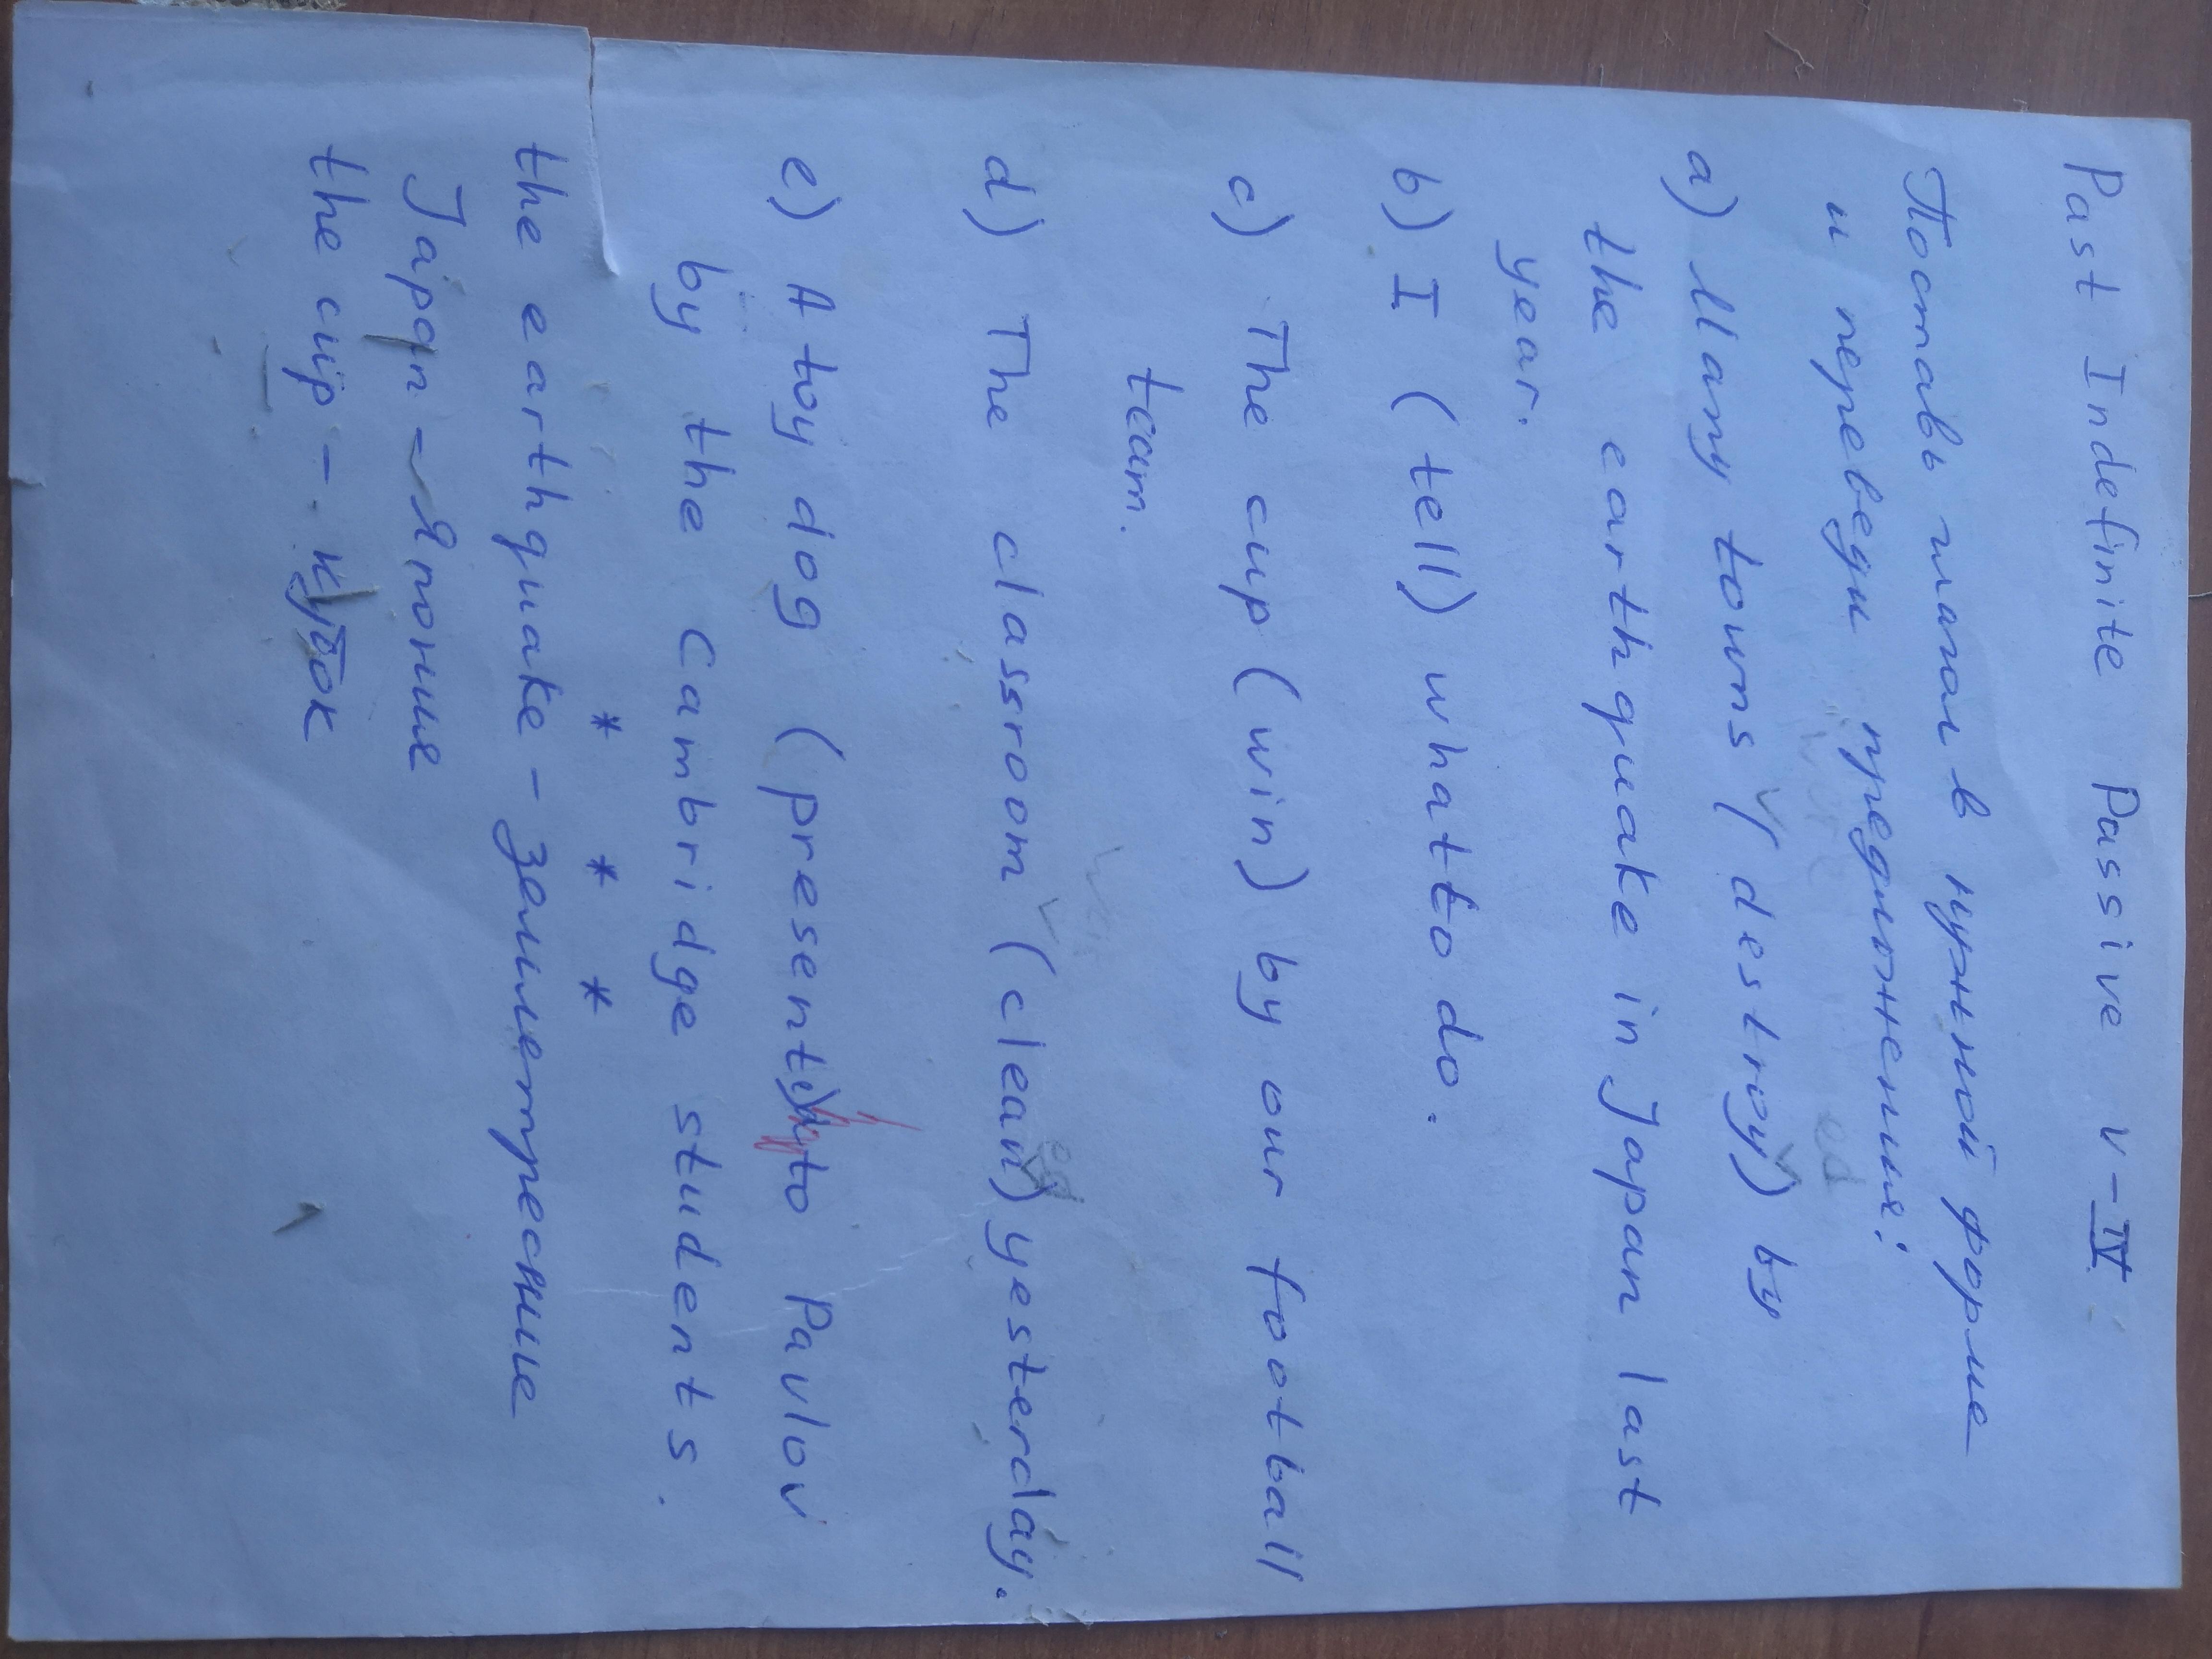 Past Indefinite Passive V-IV:
Поставь глагол в нужной форме
и переведи предложения:
a) Many towns (destroy) by
the earthquake in Japan last
year.
b) I (tell) what to do.
c) The cup (win) by our football
team.
d) The classroom (clean) yesterday.
e) A toy dog (present) to Pavlov
by the Cambridge students.
* * *
the earthquake - землетресние
Japan - Япония
the cup - кубок